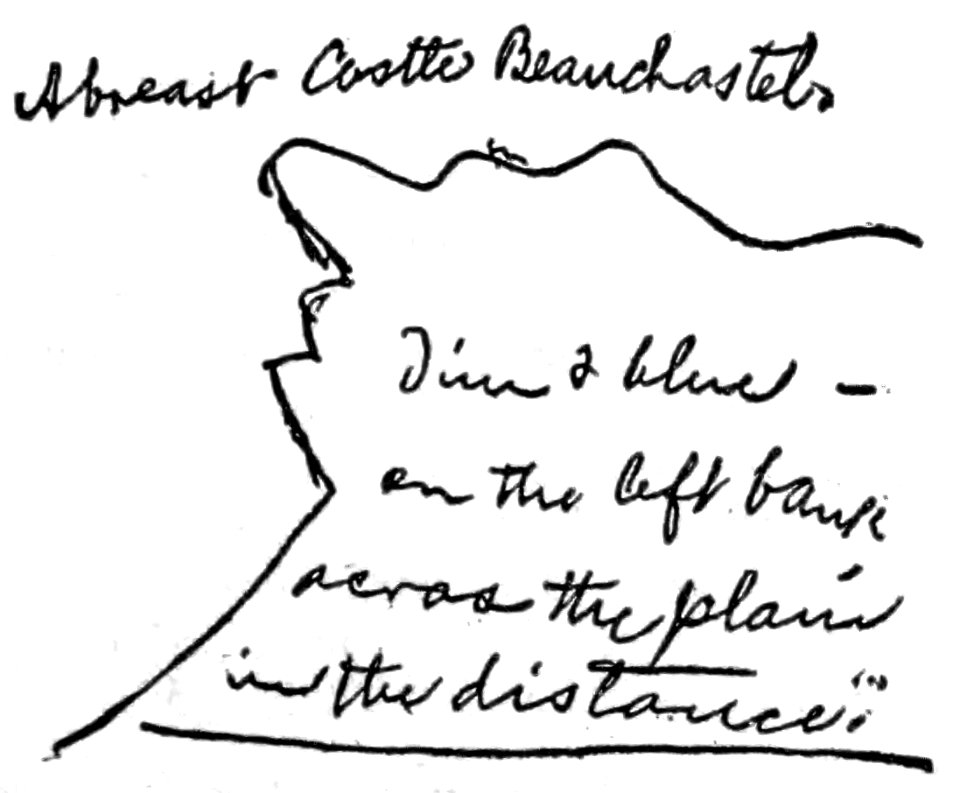 Abreast Castle Beauchastel.
Dim & blue —
on the left bank
across the plain
in the distance.